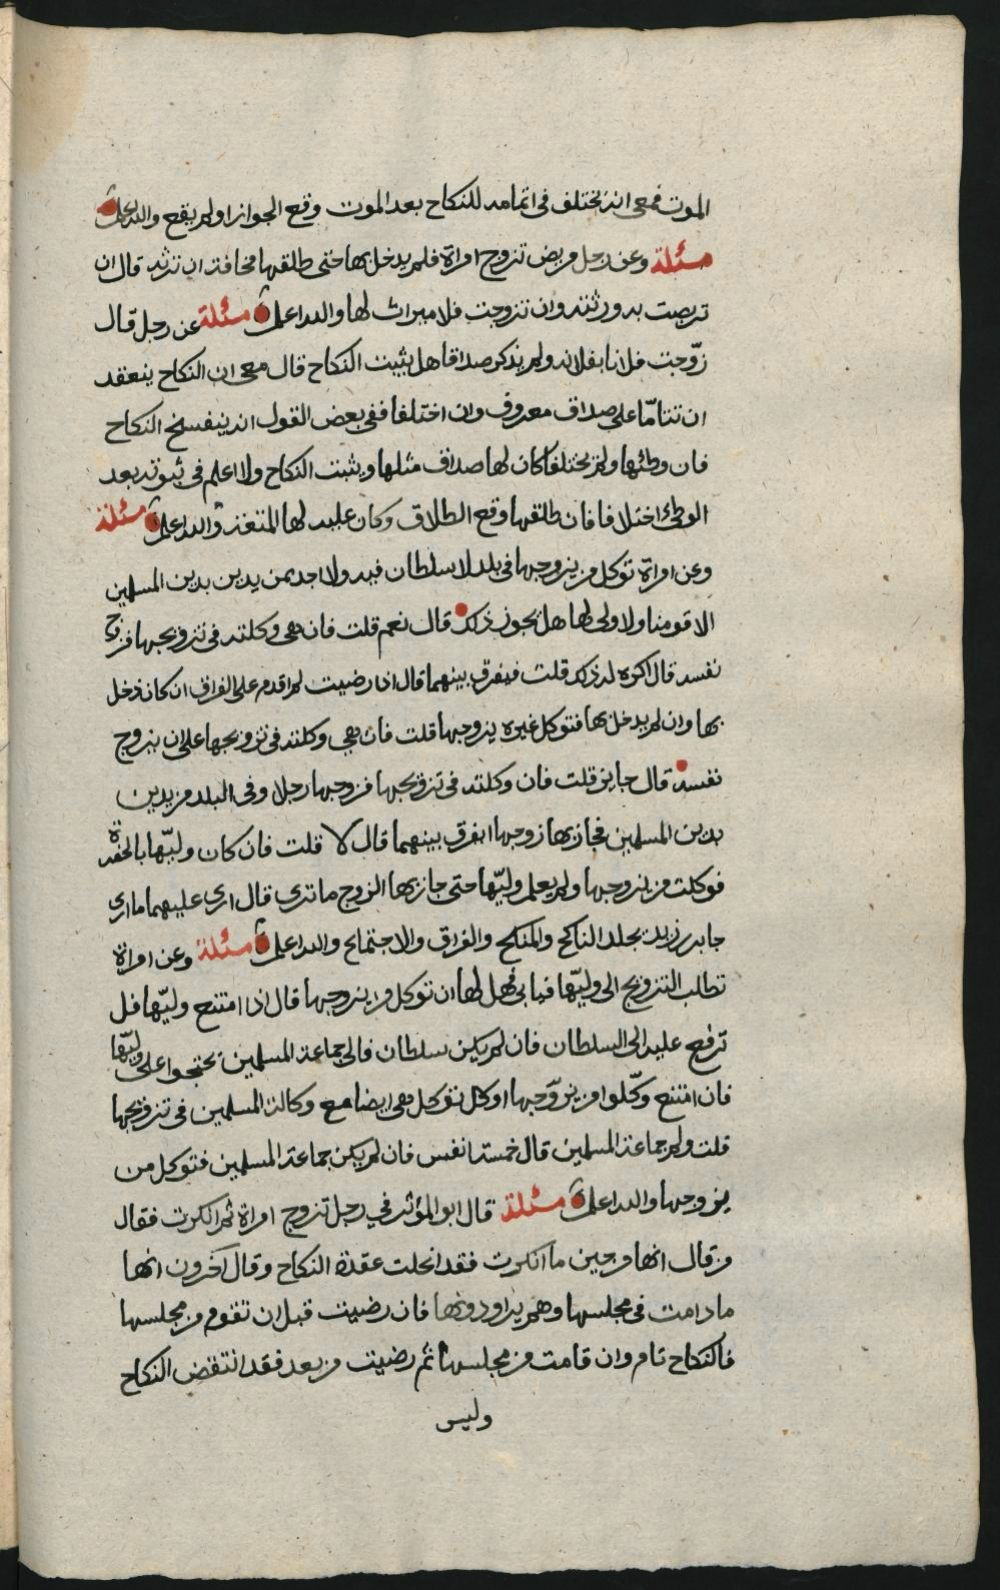 الموت فمعي انه يختلف في اتمامه للنكاح بعد الموت وقع الجواز او لم يقع والله اعلم
مسئلة وعن رجل مريض تزوج امراة فلم يدخل بها حتى طلقها مخافة ان ترثه قال ان
تربصت به ورثته وان تزوجت فلا ميراث لها والله اعلم مسئلة عن رجل قال
زوّجت فلانا بفلانه ولم يذكر صداقا هل يثبت النكاح قال معي ان النكاح ينعقد
ان تتامّا على صداق معروف وان اختلفا ففي بعض القول انه ينفسخ النكاح
فان وطئها ولم يختلفا كان لها صداق مثلها ويثبت النكاح ولا اعلم في ثبوته بعد
الوطئ اختلافا فان طلقها وقع الطلاق وكان عليه لها المتعة والله اعلم مسئلة
وعن امراة توكل من يزوجها في بلد لا سلطان فيه ولا احد ممن يدين بدين المسلمين
الا قومنا ولا ولي لها هل يجوز ذلك قال نعم قلت فان هي وكلته في تزويجها فزوج
نفسه قال اكره له ذلك قلت فيفرق بينهما قال اذا رضيت لم اقدم على الفراق ان كان دخل
بها وان لم يدخل بها فتوكل غيره يزوجها قلت فان هي وكلته في تزويجها على ان يزوج
نفسه قال جايز قلت فان وكلته في تزويجها فزوجها رجلا وفي البلد من يدين
بدين المسلمين فجاز بها زوجها ايفرق بينهما قال لا قلت فان كان وليّها بالحضرة
فوكلت من يزوجها ولم يعلم وليّها حتى جاز بها الزوج ما ترى قال ارى عليهما ما راى
جابر بن زيد بجلد الناكح والمنكح والفراق والاجتماع والله اعلم مسئلة وعن امراة
تطلب التزويج الى وليّها فيابى فهل لها ان توكل من يزوجها قال اذا امتنع وليّها فل
ترفع عليه الى السلطان فان لم يكن سلطان فالى جماعة المسلمين يحتجوا على وليّها
فان امتنع وكّلوا من يزوّجها او كل توكل هي ايضا مع وكالة المسلمين في تزويجها
قلت وكم جماعة المسلمين قال خمسة انفس فان لم يكن جماعة المسلمين فتوكل من
يزوجها والله اعلم مسئلة قال ابو المؤثر في رجل تزوج امراة ثم انكرت فقال
من قال انها من حين ما انكرت فقد انحلت عقدة النكاح وقال آخرون انها
ما دامت في مجلسها وهم يراودونها فان رضيت قبل ان تقوم من مجلسها
فالنكاح تام وان قامت من مجلسها ثم رضيت من بعد فقد انتقض النكاح
وليس